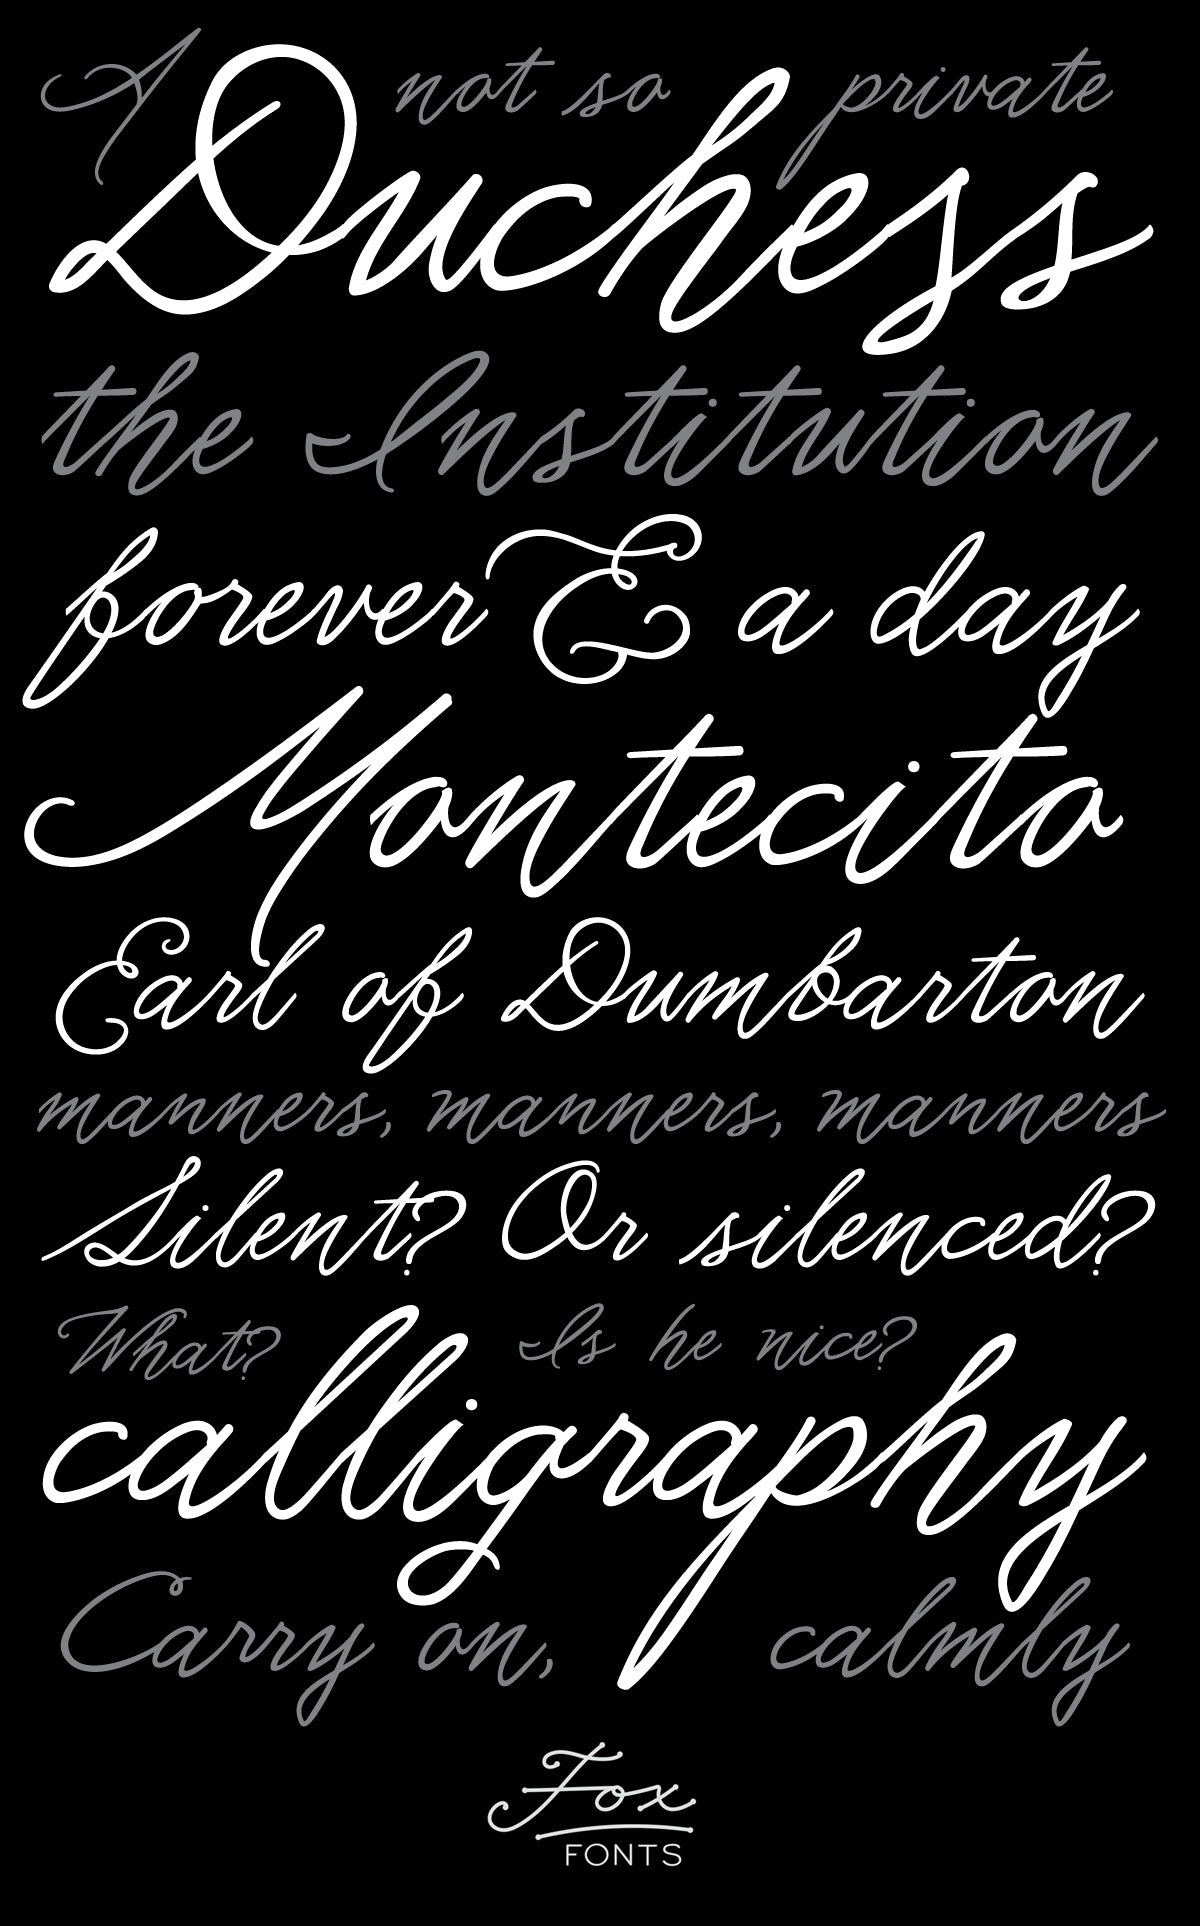 A not so private
Duchess
the Institution
forever & a day
Montecito
Earl of Dumbarton
manners, manners, manners
Silent? Or silenced?
What? Is he nice?
calligraphy
Carry on, calmly
Fox
FONTS